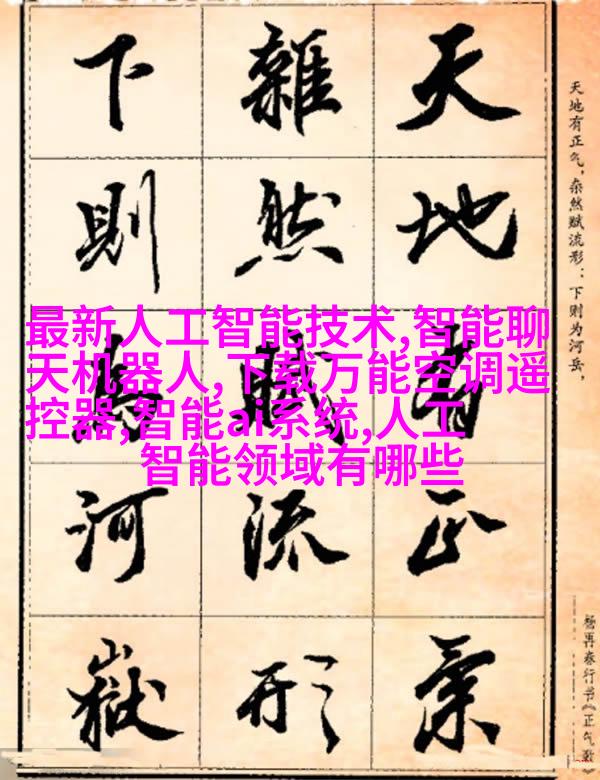 天地有正氣
雜然賦流形
下則為河嶽
天地有正气，杂然赋流形：下则为河岳，
杨再春行书《正气歌》
最新人工智能技术,智能聊
天机器人,下载万能空调遥
控器,智能ai系统,人工
智能领域有哪些